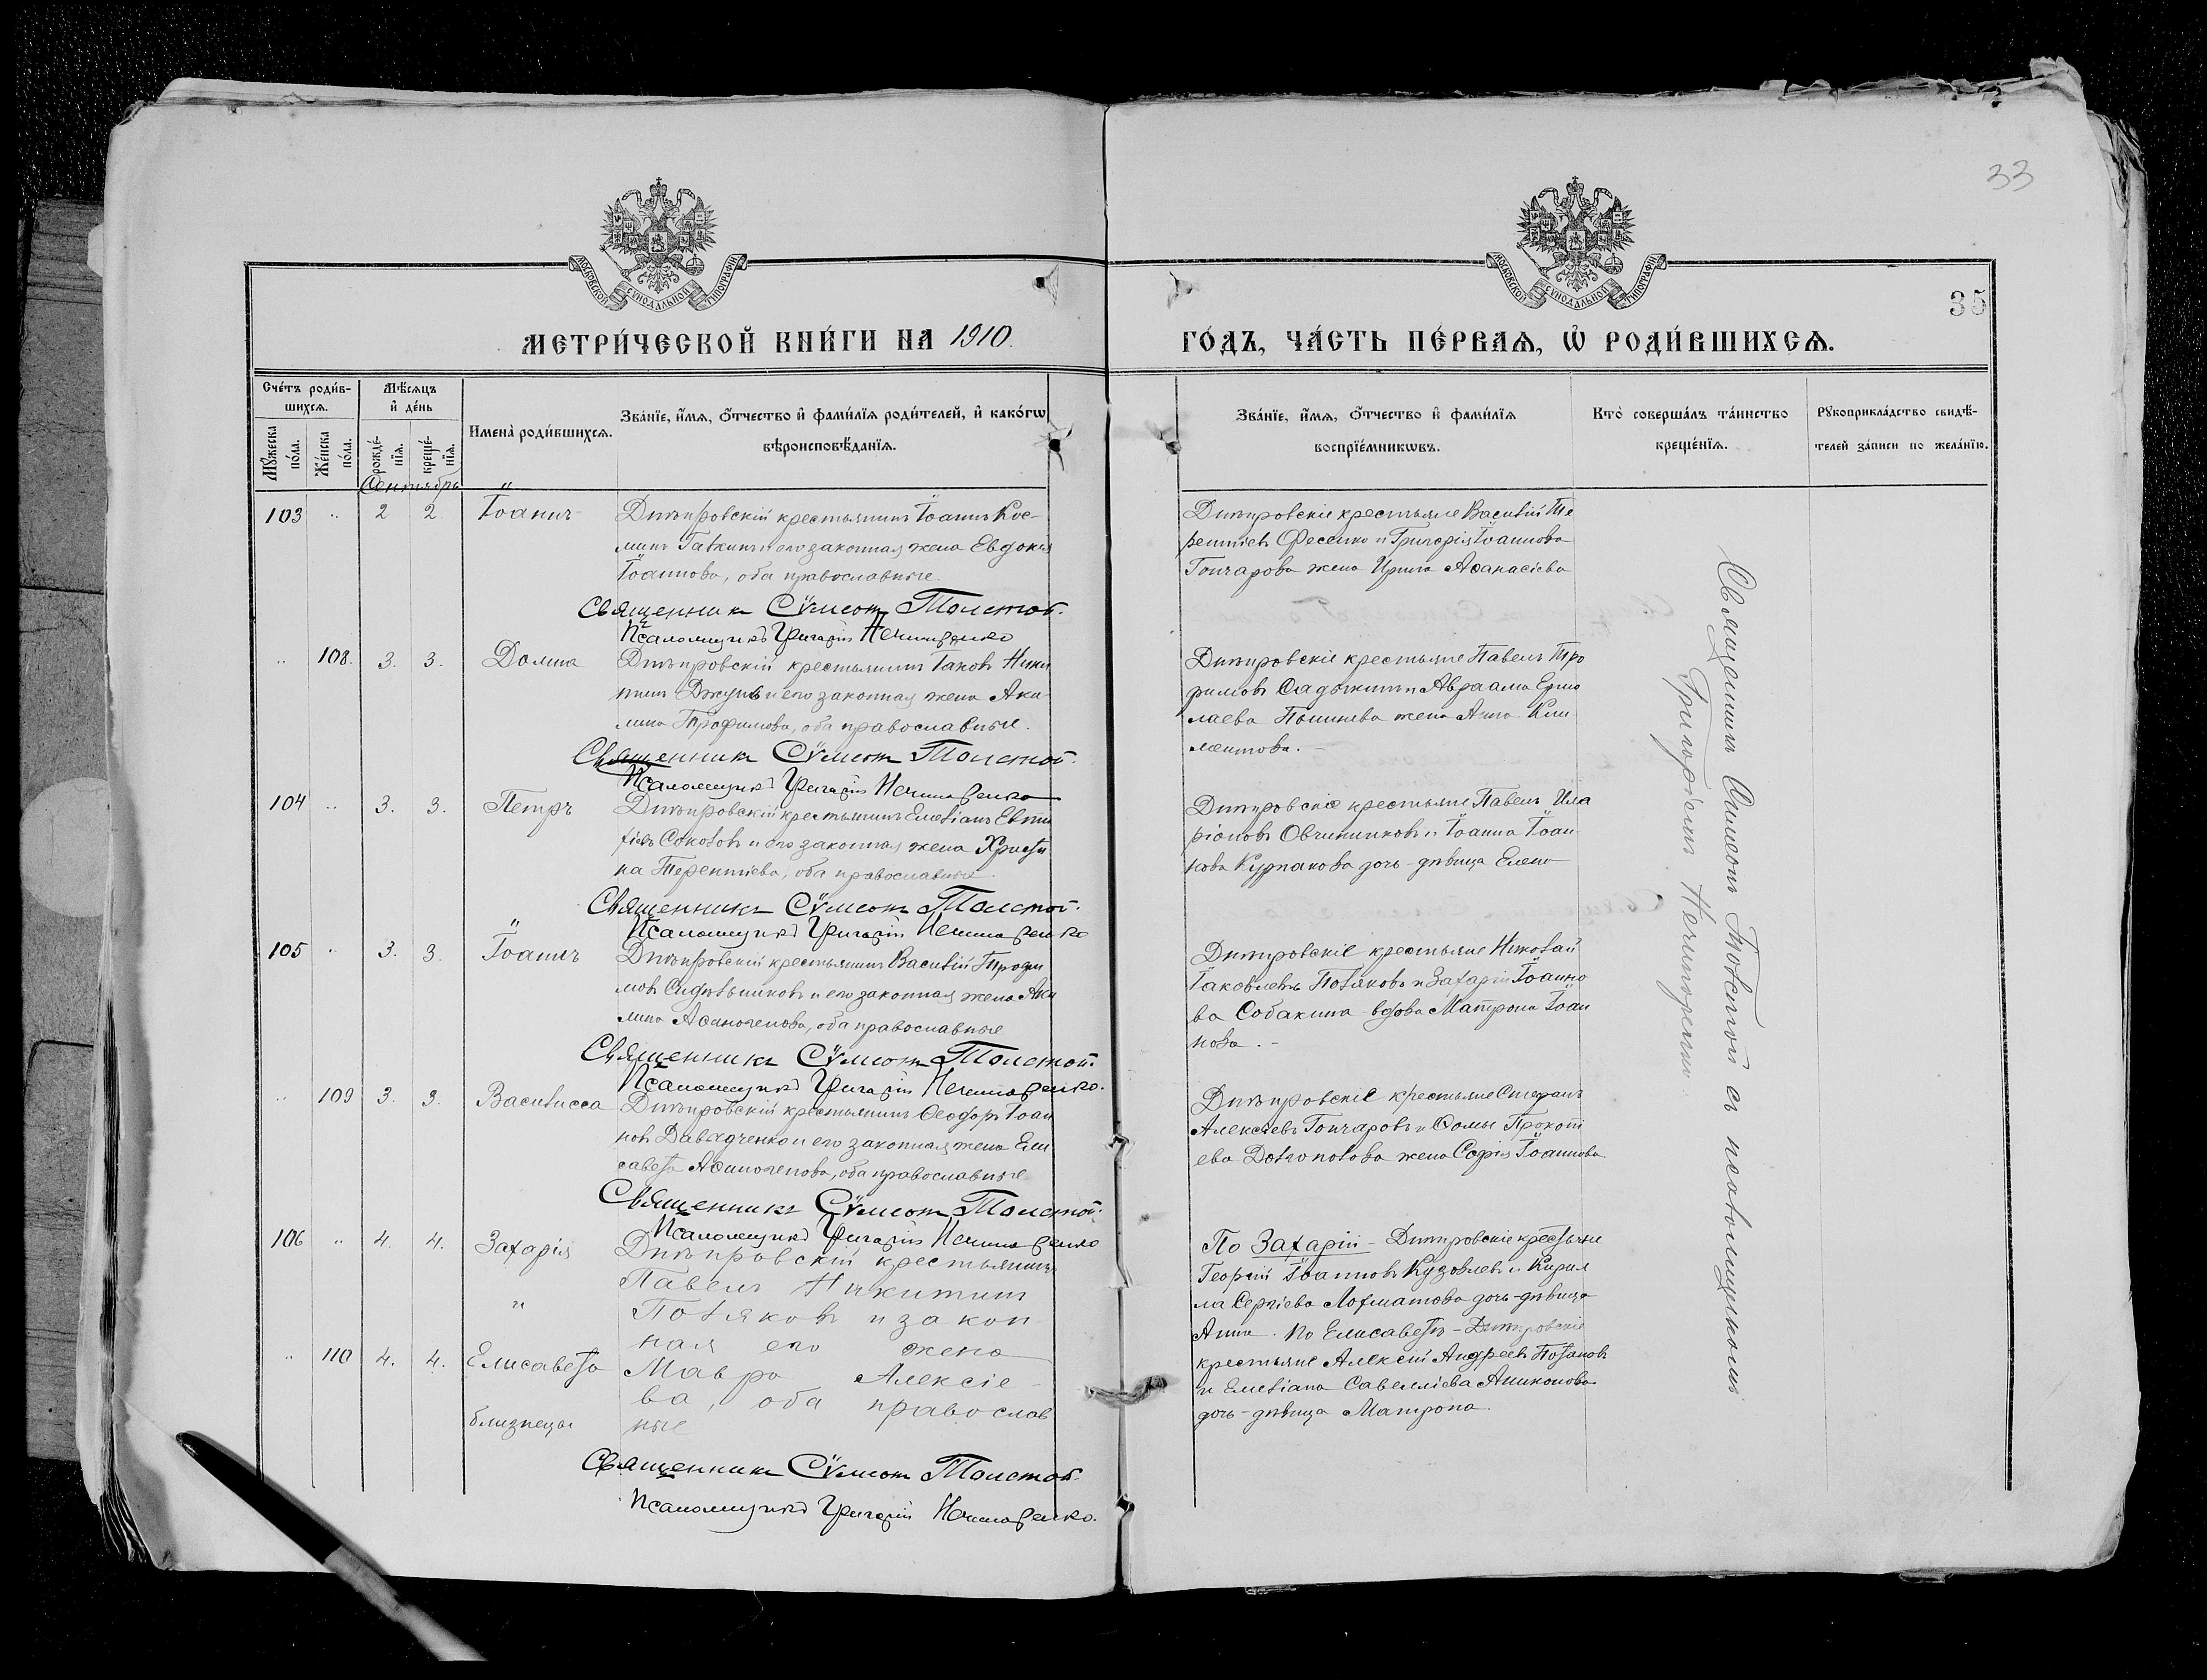 33
МОСКОВСКОЙ СѴНОДАЛЬНОЙ ТИПОГРАФІИ
МОСКОВСКОЙ СѴНОДАЛЬНОЙ ТИПОГРАФІИ
35
МЕТРИ́ЧЕСКОЙ КНИ́ГИ НА 1910. ГО́ДЪ, ЧА́СТЬ ПЕ́РВАѦ, Ѽ РОДИ́ВШИХСѦ.
Сче́тъ роди́вшихсѧ.
Мꙋ́жеска по́ла.
Же́нска по́ла.
Мѣ́сѧцъ и҆ де́нь
рожде́нїѧ.
креще́нїѧ.
Имена̀ роди́вшихсѧ.
Зва́нїе, и҆́мѧ, ѻ҆́тчество и҆ фами́лїѧ роди́телей, и҆ како́гѡ
вѣроисповѣ́данїѧ.
Зва́нїе, и҆́мѧ, ѻ҆́тчество и҆ фами́лїѧ
воспрїе́мникѡвъ.
Кто̀ соверша́лъ та́инство
креще́нїѧ.
Рꙋкоприкла́дство свидѣ́-
телей за́писи по жела́нїю.
Сентябрь
103 " 2 2 Іоаннъ
Днѣпровскій крестьянинъ Іоаннъ Кос-
минъ Галкинъ и его законная жена Евдокія
Іоаннова, оба православные.
Священник Сѵмеон Толстой.
Псаломщикъ Григорій Нечипоренко
Днѣпровскіе крестьяне Василій Те
рентіевъ Фесенко и Григорія Іоаннова
Гончарова жена Ирина Аѳанасіева
" 108. 3. 3. Домна
Днѣпровскій крестьянинъ Іаковъ Ники
тинъ и его законная жена Аки-
лина Трофимова, оба православные.
Священник Сѵмеон Толстой.
Псаломщикъ Григорій Нечипоренко
Днѣпровскіе крестьяне Павелъ Тро
фимовъ Садыкинъ и Авраама Ермо
лаева жена Анна Кли
ментова. -
104 " 3. 3. Петръ
Днѣпровскій крестьянинъ Емеліанъ Евти
фіевъ Соколовъ и его законная жена Христи
на Терентіева, оба православные.
Священникъ Сѵмеон Толстой.
Псаломщикъ Григорій Нечипоренко
Днѣпровскіе крестьяне Павелъ Ила
ріоновъ Овчинниковъ и Іоанна Іоан
нова Курпакова дочь-дѣвица Елена
105 " 3. 3. Іоаннъ
Днѣпровскій крестьянинъ Василій Трофи
мовъ Сидѣльниковъ и его законная жена Аки
лина Аѳиногенова, оба православные
Священникъ Сѵмеон Толстой.
Псаломщикъ Григорій Нечипоренко.
Днѣпровскіе крестьяне Николай
Іаковлевъ Поляковъ и Захарія Іоанно
ва Собакина вдова Матрона Іоан
нова. -
" 109 3. 3. Василисса
Днѣпровскій крестьянинъ Ѳеодоръ Іоан
новъ Давидченко и его законная жена Ели
савета Аѳиногенова, оба православные
Священникъ Сѵмеон Толстой.
Псаломщикъ Григорій Нечипоренко
Днѣпровскіе крестьяне Стефанъ
Алексіевъ Гончаровъ и Ѳомы Прокопі
ева жена Софія Іоаннова
106 " 4. 4. Захарія
" 110 4. 4. Елисавета
близнецы
Днѣпровскій крестьянинъ
Павелъ Никитинъ
Поляковъ и закон
ная его жена
Мавра Алексіе
ва, оба православ
ные
Священник Сѵмеон Толстой.
Псаломщикъ Григорій Нечипоренко.
По Захаріи - Днѣпровскіе крестьяне
Георгій Іоанновъ Кузовлевъ и Кирил
ла Сергіева Лохматова дочь-дѣвица
Анна. По Елисаветѣ - Днѣпровскіе
крестьяне Алексій Андреевъ Потаповъ
и Емеліана Савелліева Аниконова
дочь-дѣвица Матрона.
Священникъ Симеонъ Толстой съ псаломщикомъ
Григоріемъ Нечипоренко